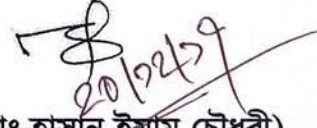 ২০/১২/১৭
হাসান ইমাম চৌধুরী)